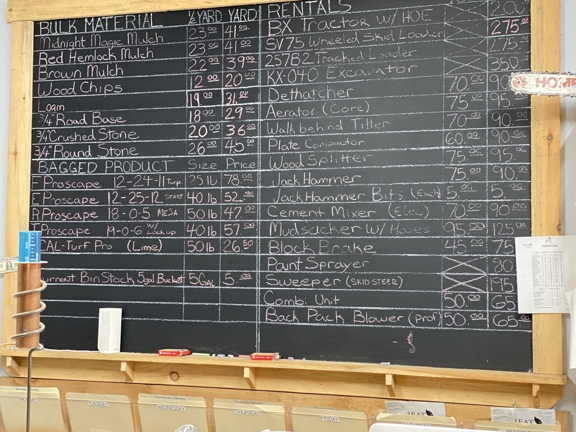 BULK MATERIAL ½ YARD YARD
Midnight Magic Mulch 23.00 41.00
Red Hemlock Mulch 23.00 41.00
Brown Mulch 22.00 39.00
Wood Chips 12.00 20.00
Loam 19.00 31.00
3/4" Road Base 18.00 29.00
3/4" Crushed Stone 20.00 36.00
3/4" Round Stone 26.00 45.00
BAGGED PRODUCT Size Price
Proscape 12-24-11 25 lb 78.00
Proscape 12-25-12 START 40 lb 52.00
Proscape 18-0-5 MESA 50 lb 47.00
Proscape 19-0-6 40 lb 57.00
CAL-Turf Pro (Lime) 50 lb 26.50
Current Bin Stock 5gal Bucket 5 Gal 5.00
RENTALS
BX Tractor W/ HOE 275.00
SV75 Wheeled Skid Loader 275
257B2 Tracked Loader 350
KX-040 Excavator
Dethatcher 70.00
Aerator (Core) 75.00 95
Walk behind Tiller 70.00 90.00
Plate Compactor 60.00 90.00
Wood Splitter 75.00 95.
Jack Hammer 75.00 90.
Jack Hammer Bits 5.00 5.
Cement Mixer 70.00 90.00
Mudsucker W/ Hoses 95.00 125.00
Block Brake 45.00 75.
Paint Sprayer 80
Sweeper (SKID STEER) 195
Combi Unit 50.00 65
Back Pack Blower (prof) 50.00 65.00
HOM